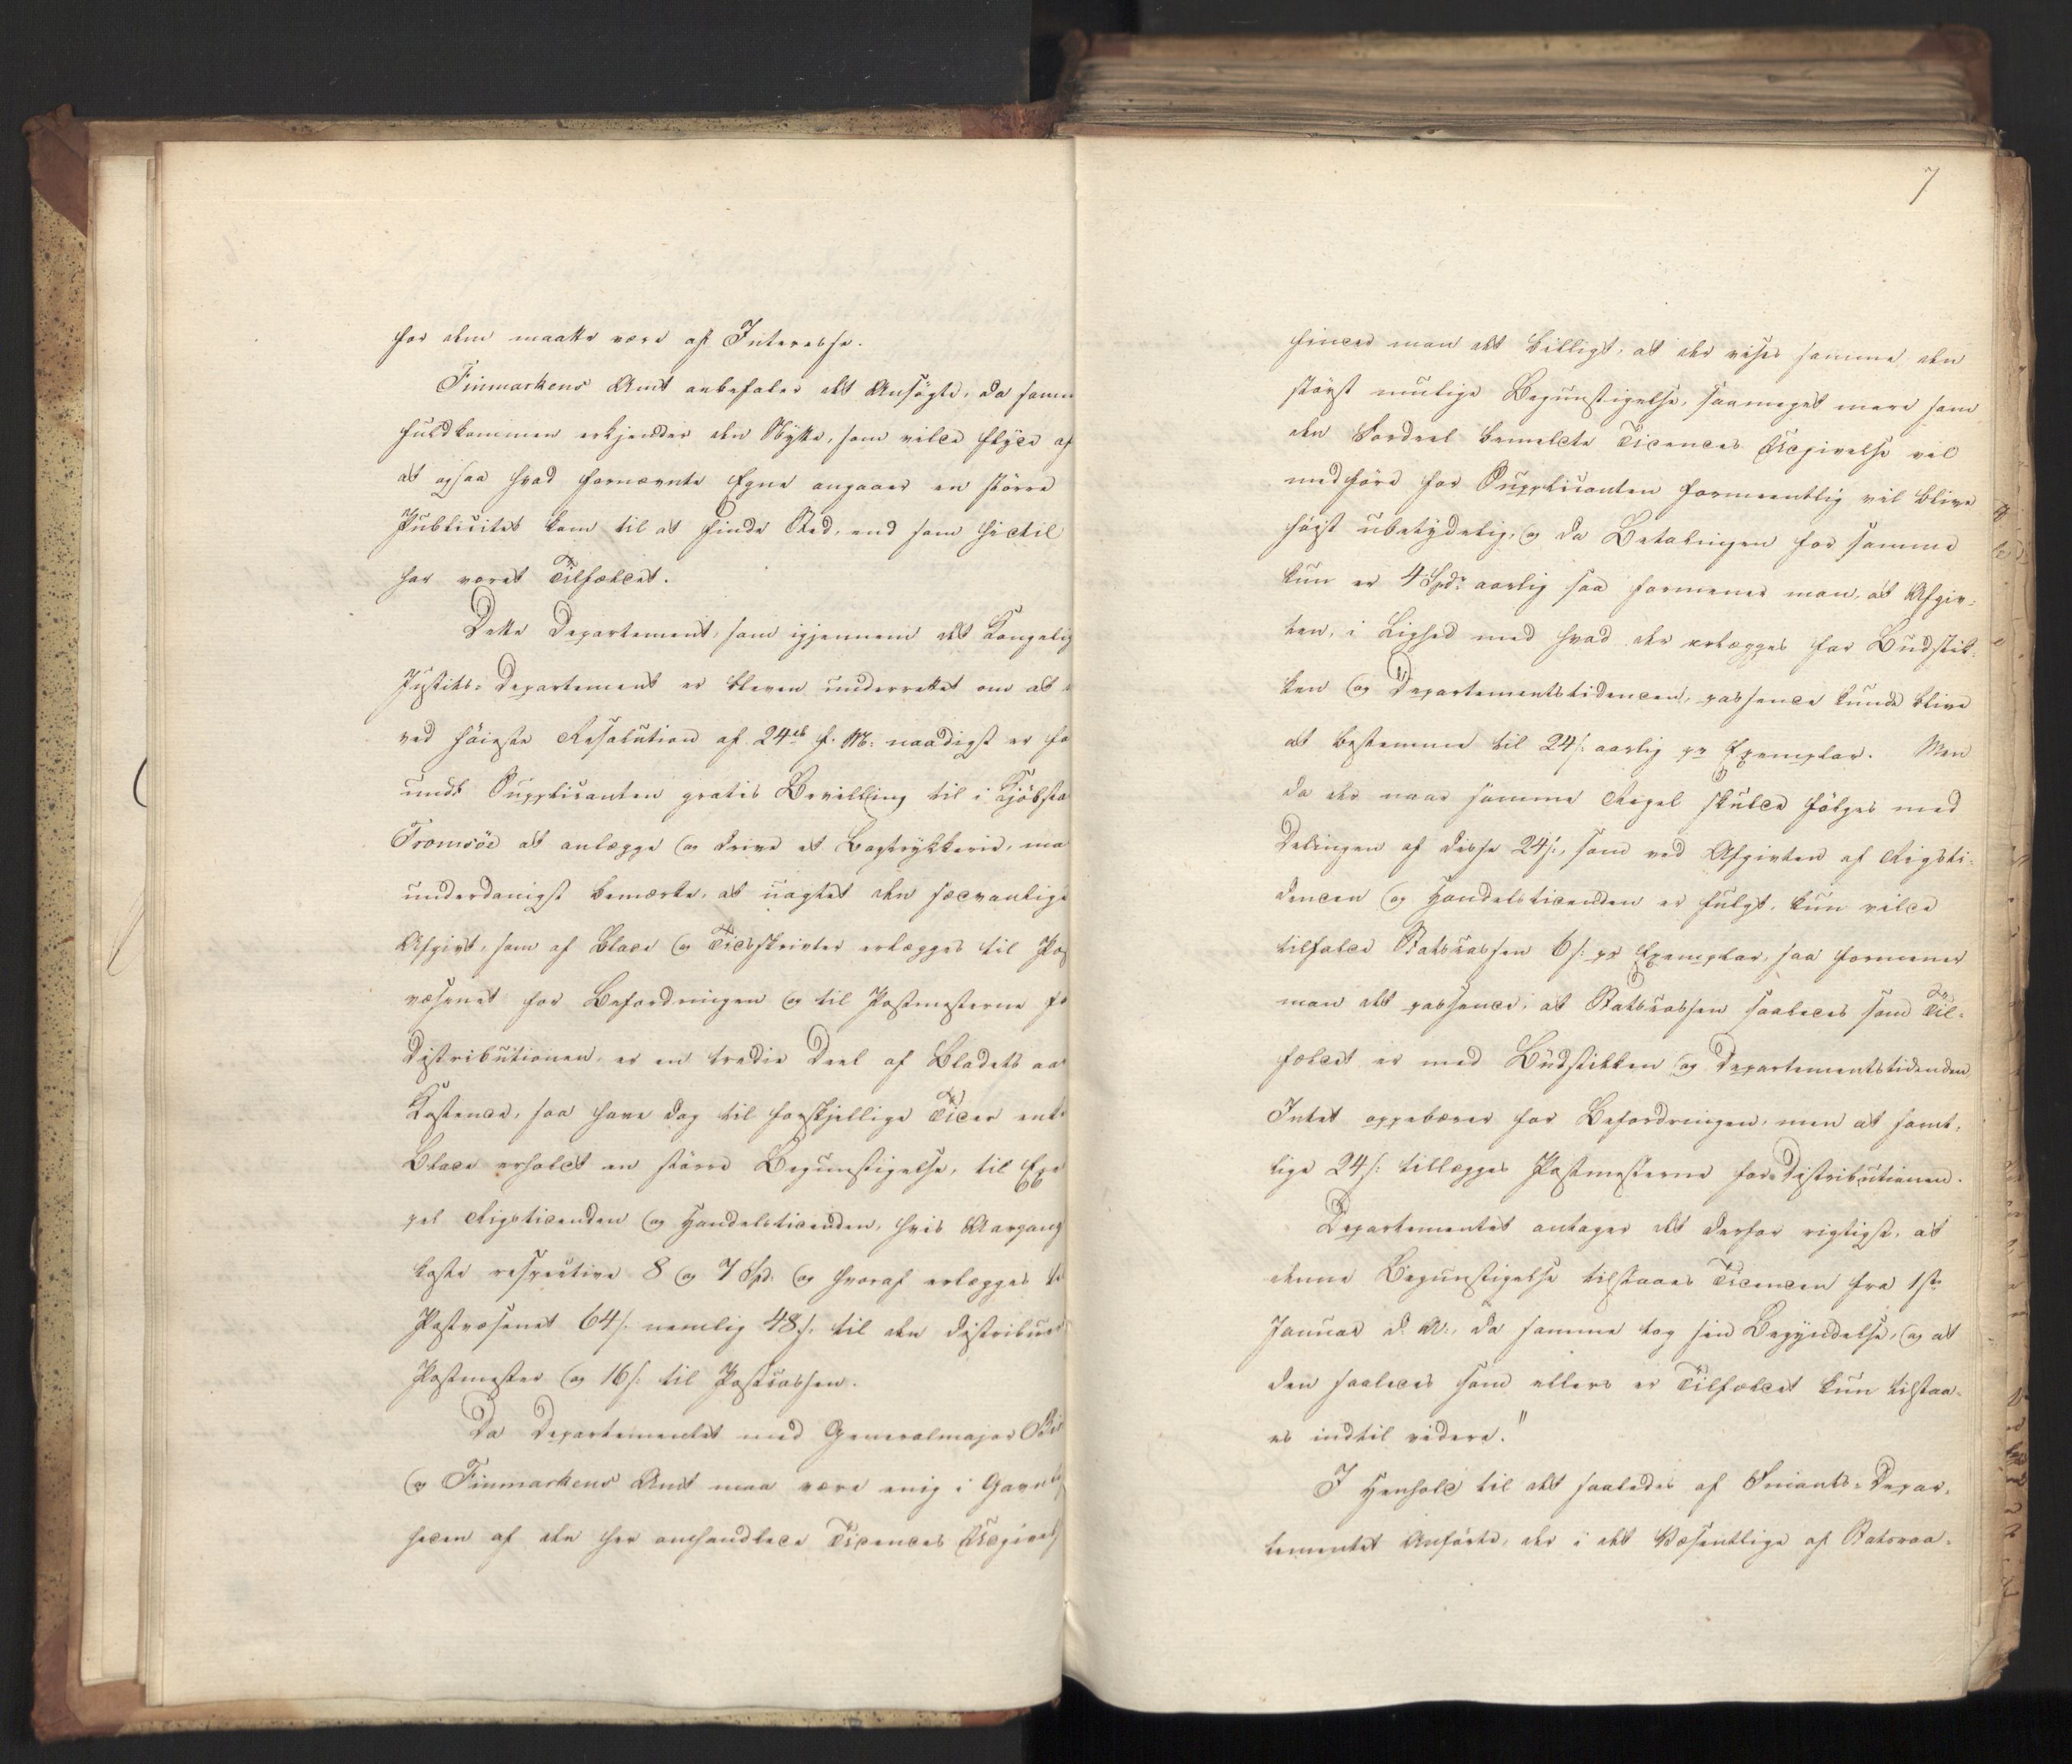 for dem maatte være af Interesse.
Finmarkens Amt anbefaler det Ansøgte, da samme
fuldkommen erkjender den Nytte, som vilde flyde af
at ogsaa hvad fornævnte Egne angaaer en større
Publicitet kom til at finde Sted, end som hidtil
har været Tilfældet.
Dette Departement, som igjennem det Kongelig
Justits-Departement er bleven underrettet om at
ved høieste Resolution af 24de f. M. naadigst er
undt Supplicanten gratis Bevilling til i Kjøbsta
Tromsöe at anlægge og drive et Bogtrykkerie, maa
underdanigst bemærke, at uagtet den sædvanlige
Afgivt, som af Blade og Tidsskrivter erlægges til Post
væsenet for Befordringen og til Postmesterne for
Distributionen, er en tredie Deel af Bladets aar
Kostende, saa have dog til forskjellige Tider enk
Blade erholdt en større Begunstigelse, til Exe
pel Rigstidenden og Handelstidenden, hvis Aargang
koste respective 8 og 7 Spd. og hvoraf erlægges til
Postvæsenet 64 s. nemlig 48 s. til den distribue
Postmester og 16 s. til Postcassen.
Da Departementet med Generalmajor
og Finmarkens Amt maa være enig i Gavn
heden af den her omhandlede Tidendes Udgivels
7
findes man det billigt, at der vises samme den
størst mulige Begunstigelse, saameget mere som
den Fordeel bemeldte Tidendes Udgivelse vel
medføre for Supplicanten formeentlig vil blive
høist ubetydelig, og da Betalingen for samme
kun er 4 Spdr aarlig saa formener man, at Afgiv-
ten, i Lighed med hvad der erlægges for Budstik-
ken og Departementstidenden, passende kunde blive
at bestemme til 24 s. aarlig pr Exemplar. Men
da der naar samme Regel skulde følges med
Delingen af disse 24 s., som ved Afgivten af Rigsti-
denden og Handelstidenden er fulgt, kun vilde
tilfalde Statscassen 6 s. pr Exemplar, saa formener
man det passende, at Statscassen saaledes som Til-
fældet er med Budstikken og Departementstidenden
Intet oppebærer for Befordringen, men at samt-
lige 24 s. tillægges Postmesterne for Distributionen.
Departementet antager det derfor rigtigst, at
denne Begunstigelse tilstaaes Tidenden fra 1ste
Januar d. A., da samme tog sin Begyndelse, og at
den saaledes som ellers er Tilfældet kun tilstaa-
es indtil videre."
I Henhold til det saaledes af Finants-Depar-
tementet Anførte, der i det Væsentlige af Statsraa-